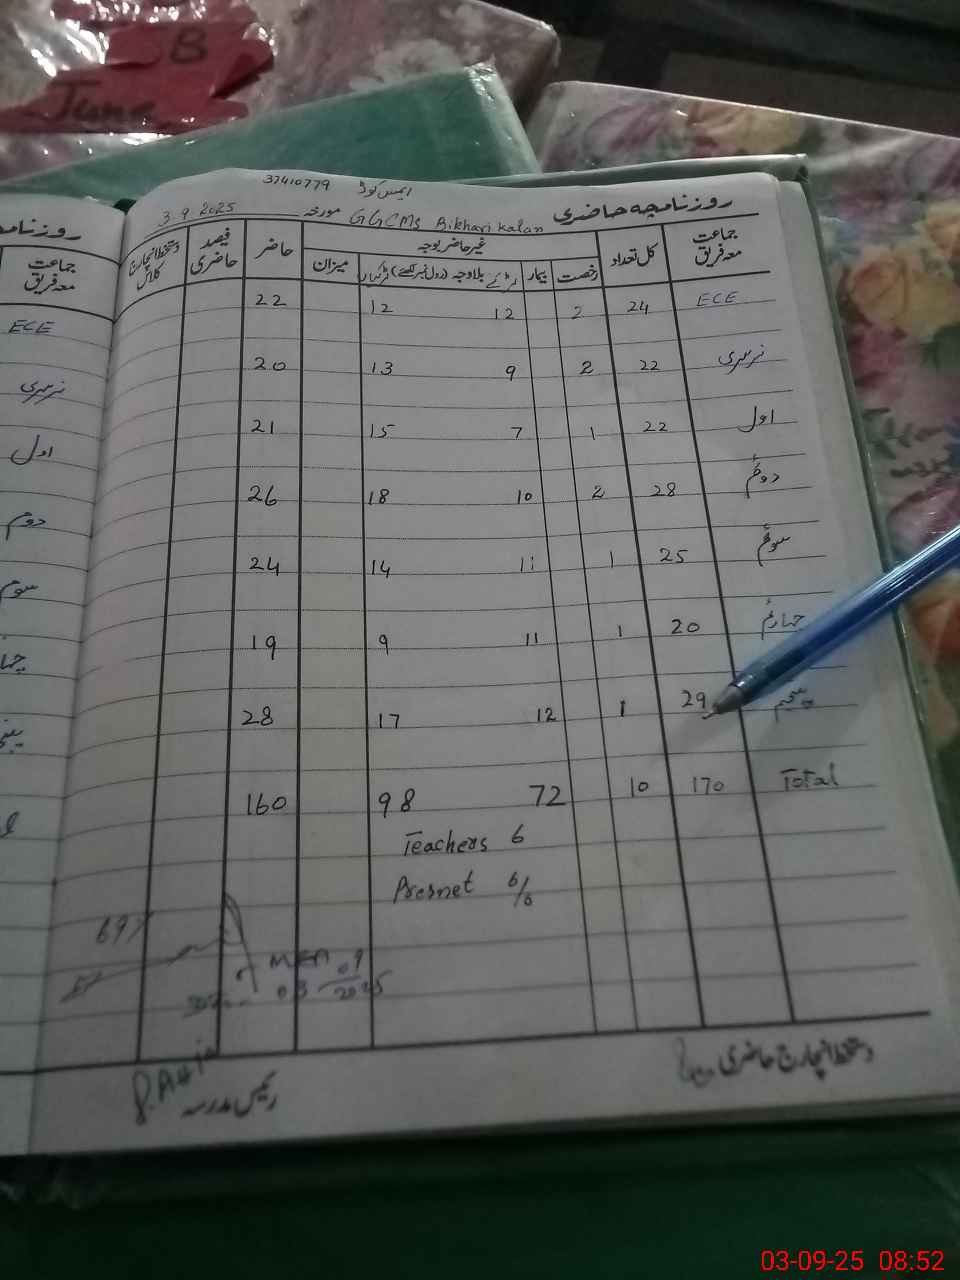 SB
June
37410779 ایمس کوڈ
روزنامچہ حاضری GGCMS Bikhari Kalan مورخہ 3.9.2025
جماعت معہ فریق کل تعداد غیر حاضر بوجہ حاضر فیصد حاضری دستخط انچارج کلاس
رخصت بیمار بلاوجہ میزان
ECE 24 2 12 12 22
نرسری 22 2 9 13 20
اول 22 1 7 15 21
دوئم 28 2 10 18 26
سوئم 25 1 11 14 24
چہارم 20 1 11 9 19
پنجم 29 1 12 17 28
Total 170 10 72 98 160
Teachers 6
Presnet 6/6
69%
MEA
03 09 2025
دستخط انچارج حاضری
رئیس مدرسہ
روزنامچہ
جماعت معہ فریق
ECE
نرسری
اول
دوم
سوم
03-09-25 08:52